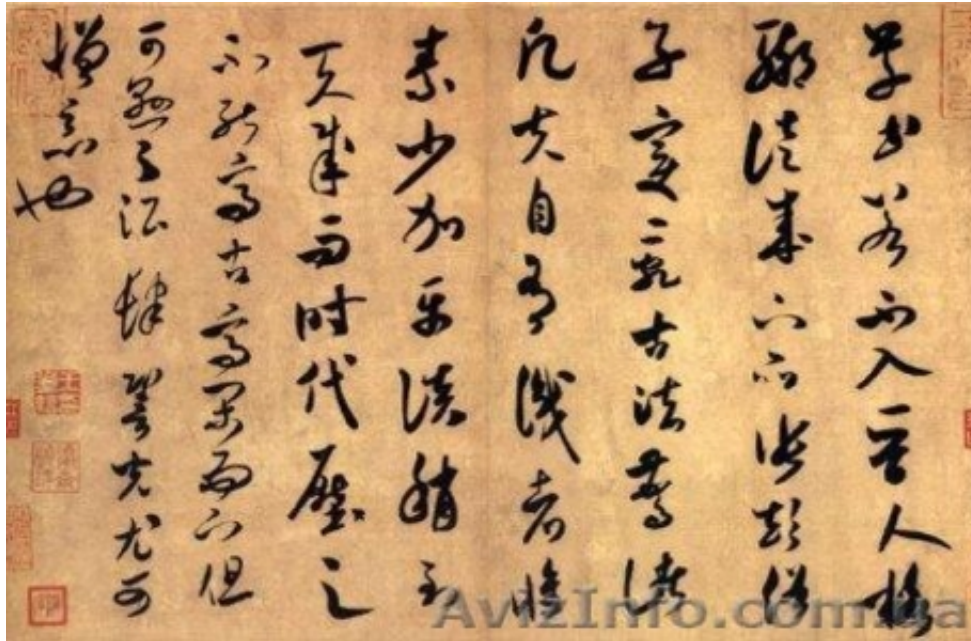 草書若不入晉人格
輒徒成下品張顛俗
子變亂古法驚諸
凡夫自有識者懷
素少加平淡稍到
天成而時代壓之
不能高古高閑而下但
可懸之酒肆䛒光尤可
憎惡也
AvizInfo.com.ua